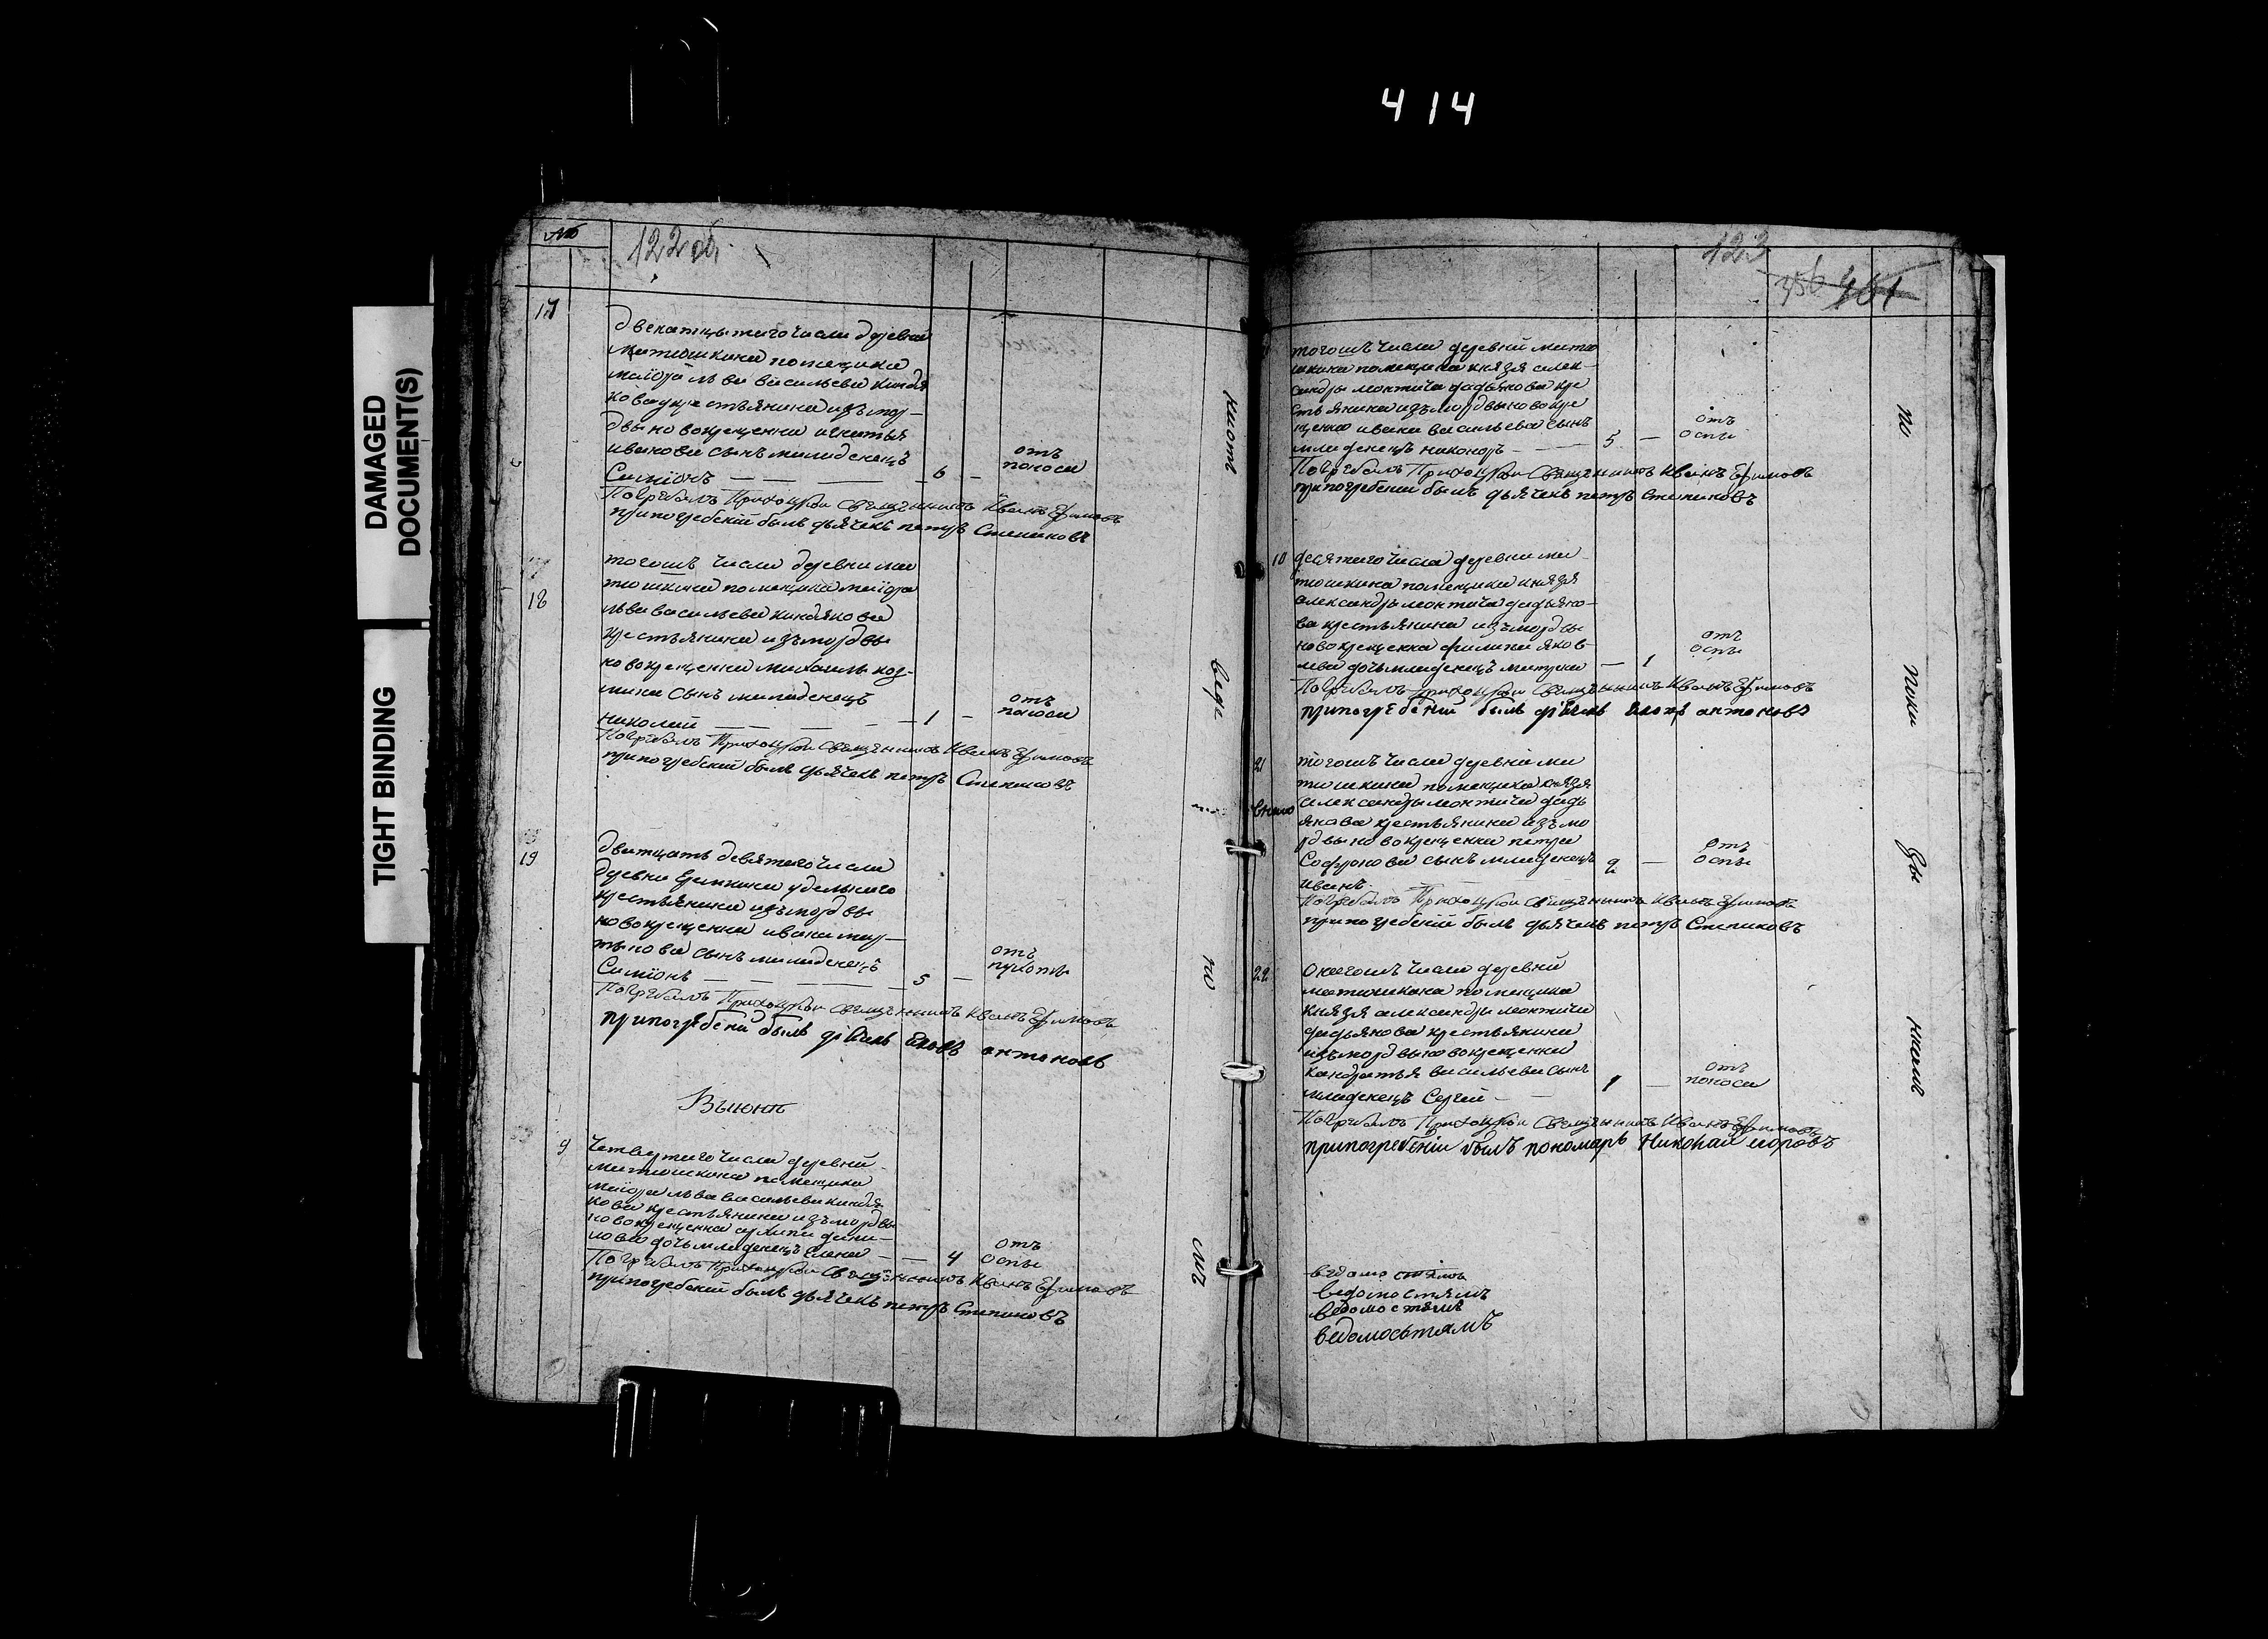 414
DAMAGED
DOCUMENT(S)
TIGHT BINDING
№
122 об.
17
двенатцатаго числа деревни
матюшкина помещика
маиора льва васильева киндя
кова крестьянина изъ мор-
двы новокрещенна игнатья
иванова сынъ младенецъ
Симионъ — — — 6 —
отъ
поноса
Погребалъ Приходцкои священникъ Иванъ Ефимовъ
припогребении былъ дьячекъ петръ Степановъ
18
тогошъ числа деревни ма
тюшкина помещика маиора
льва васильева киндякова
крестьянина изъ мордвы
новокрещенна михаила коз-
мина сынъ младенецъ
николай — — — 1 —
отъ
поноса
Погребалъ Приходцкои священникъ Иванъ Ефимовъ
припогребении былъ дьячекъ петръ Степановъ
19
дватцать девятаго числа
деревни удельнаго
крестьянина изъ мордвы
новокрещенна ивана мар-
тынова сынъ младенецъ
Симионъ — — — 5 —
отъ
Погребалъ Приходцкои священникъ Иванъ Ефимовъ
припогребени былъ дьячекъ яковъ антоновъ
Въ июне
9
четвертаго числа деревни
матюшкина помещика
маиора льва васильева киндя
кова крестьянина изъ мордвы
новокрещенна архипа дани-
лова дочь младенецъ елена — — 4
отъ
оспы
Погребалъ Приходцкои священникъ Иванъ Ефимовъ
припогребении былъ дьячекъ петръ Степановъ
ведо
по
смъ
123
356
тогошъ числа деревни матю
шкина помещика князя алек-
сандры леонтича дадьянова кре
стьянина изъ мордвы новокре
щенно ивана васильева сынъ
младенецъ никаноръ — 5 —
отъ
оспы
Погребалъ Приходцкои священникъ Иванъ Ефимовъ
припогребении былъ дьячекъ петръ Степановъ
10
десятаго числа деревни ма
тюшкина помещика князя
александры леонтича дадьяно-
ва крестьянина изъ мордвы
новокрещенна филипа яков-
лева дочь младенецъ матрена — 1
отъ
оспы
Погребалъ Приходцкои священникъ Иванъ Ефимовъ
припогребении былъ дьячекъ яковъ антоновъ
21
тогошъ числа деревни ма
тюшкина помещика князя
александры леонтича дадь
янова крестьянина изъ мо
рдвы новокрещенна петра
Софронова сынъ младенецъ 2 —
иванъ
отъ
оспы
Погребалъ Приходцкои священникъ Иванъ Ефимовъ
припогребении былъ дьячекъ петръ Степановъ
22
Оногошъ числа деревни
матюшкина помещика
князя александры леонтича
дадьянова крестьянина
изъ мордвы новокрещенна
кондратья васильева сынъ
младенецъ Сергей — 1 —
отъ
поноса
Погребалъ Приходцкои священникъ Иванъ Ефимовъ
припогребении былъ пономарь Николай
ведомостямъ
ведомостямъ
ведомостямъ
ведомостямъ
по